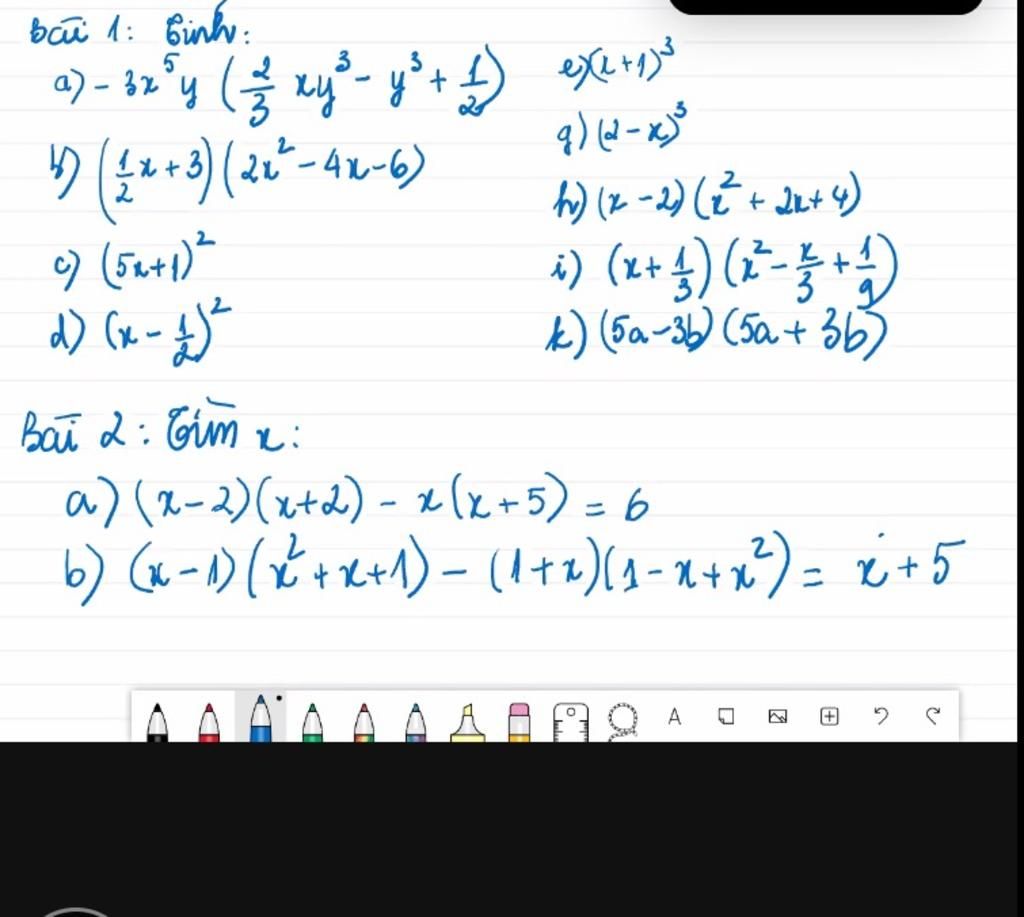 Bài 1: Tính:
a) - 3x⁵y (2/3 xy³ - y³ + 1/2)
b) (1/2 x + 3)(2x² - 4x - 6)
c) (5x+1)²
d) (x - 1/2)²
e) (x+1)³
g) (2-x)³
h) (x-2)(x² + 2x+4)
i) (x + 1/3)(x² - x/3 + 1/9)
k) (5a-3b)(5a+3b)
Bài 2: Tìm x:
a) (x-2)(x+2) - x(x+5) = 6
b) (x-1)(x²+x+1) - (1+x)(1-x+x²) = x+5
A